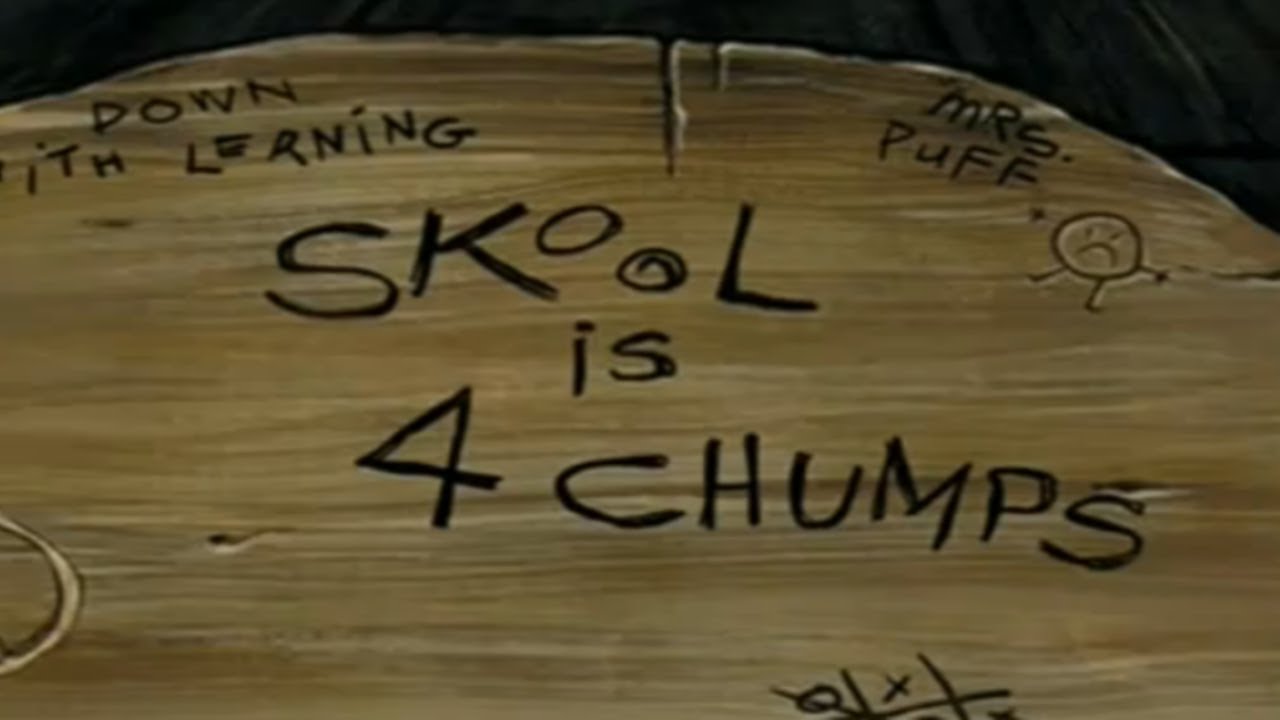 DOWN
WITH LERNING
MRS.
PUFF
SKOOL
is
4 CHUMPS